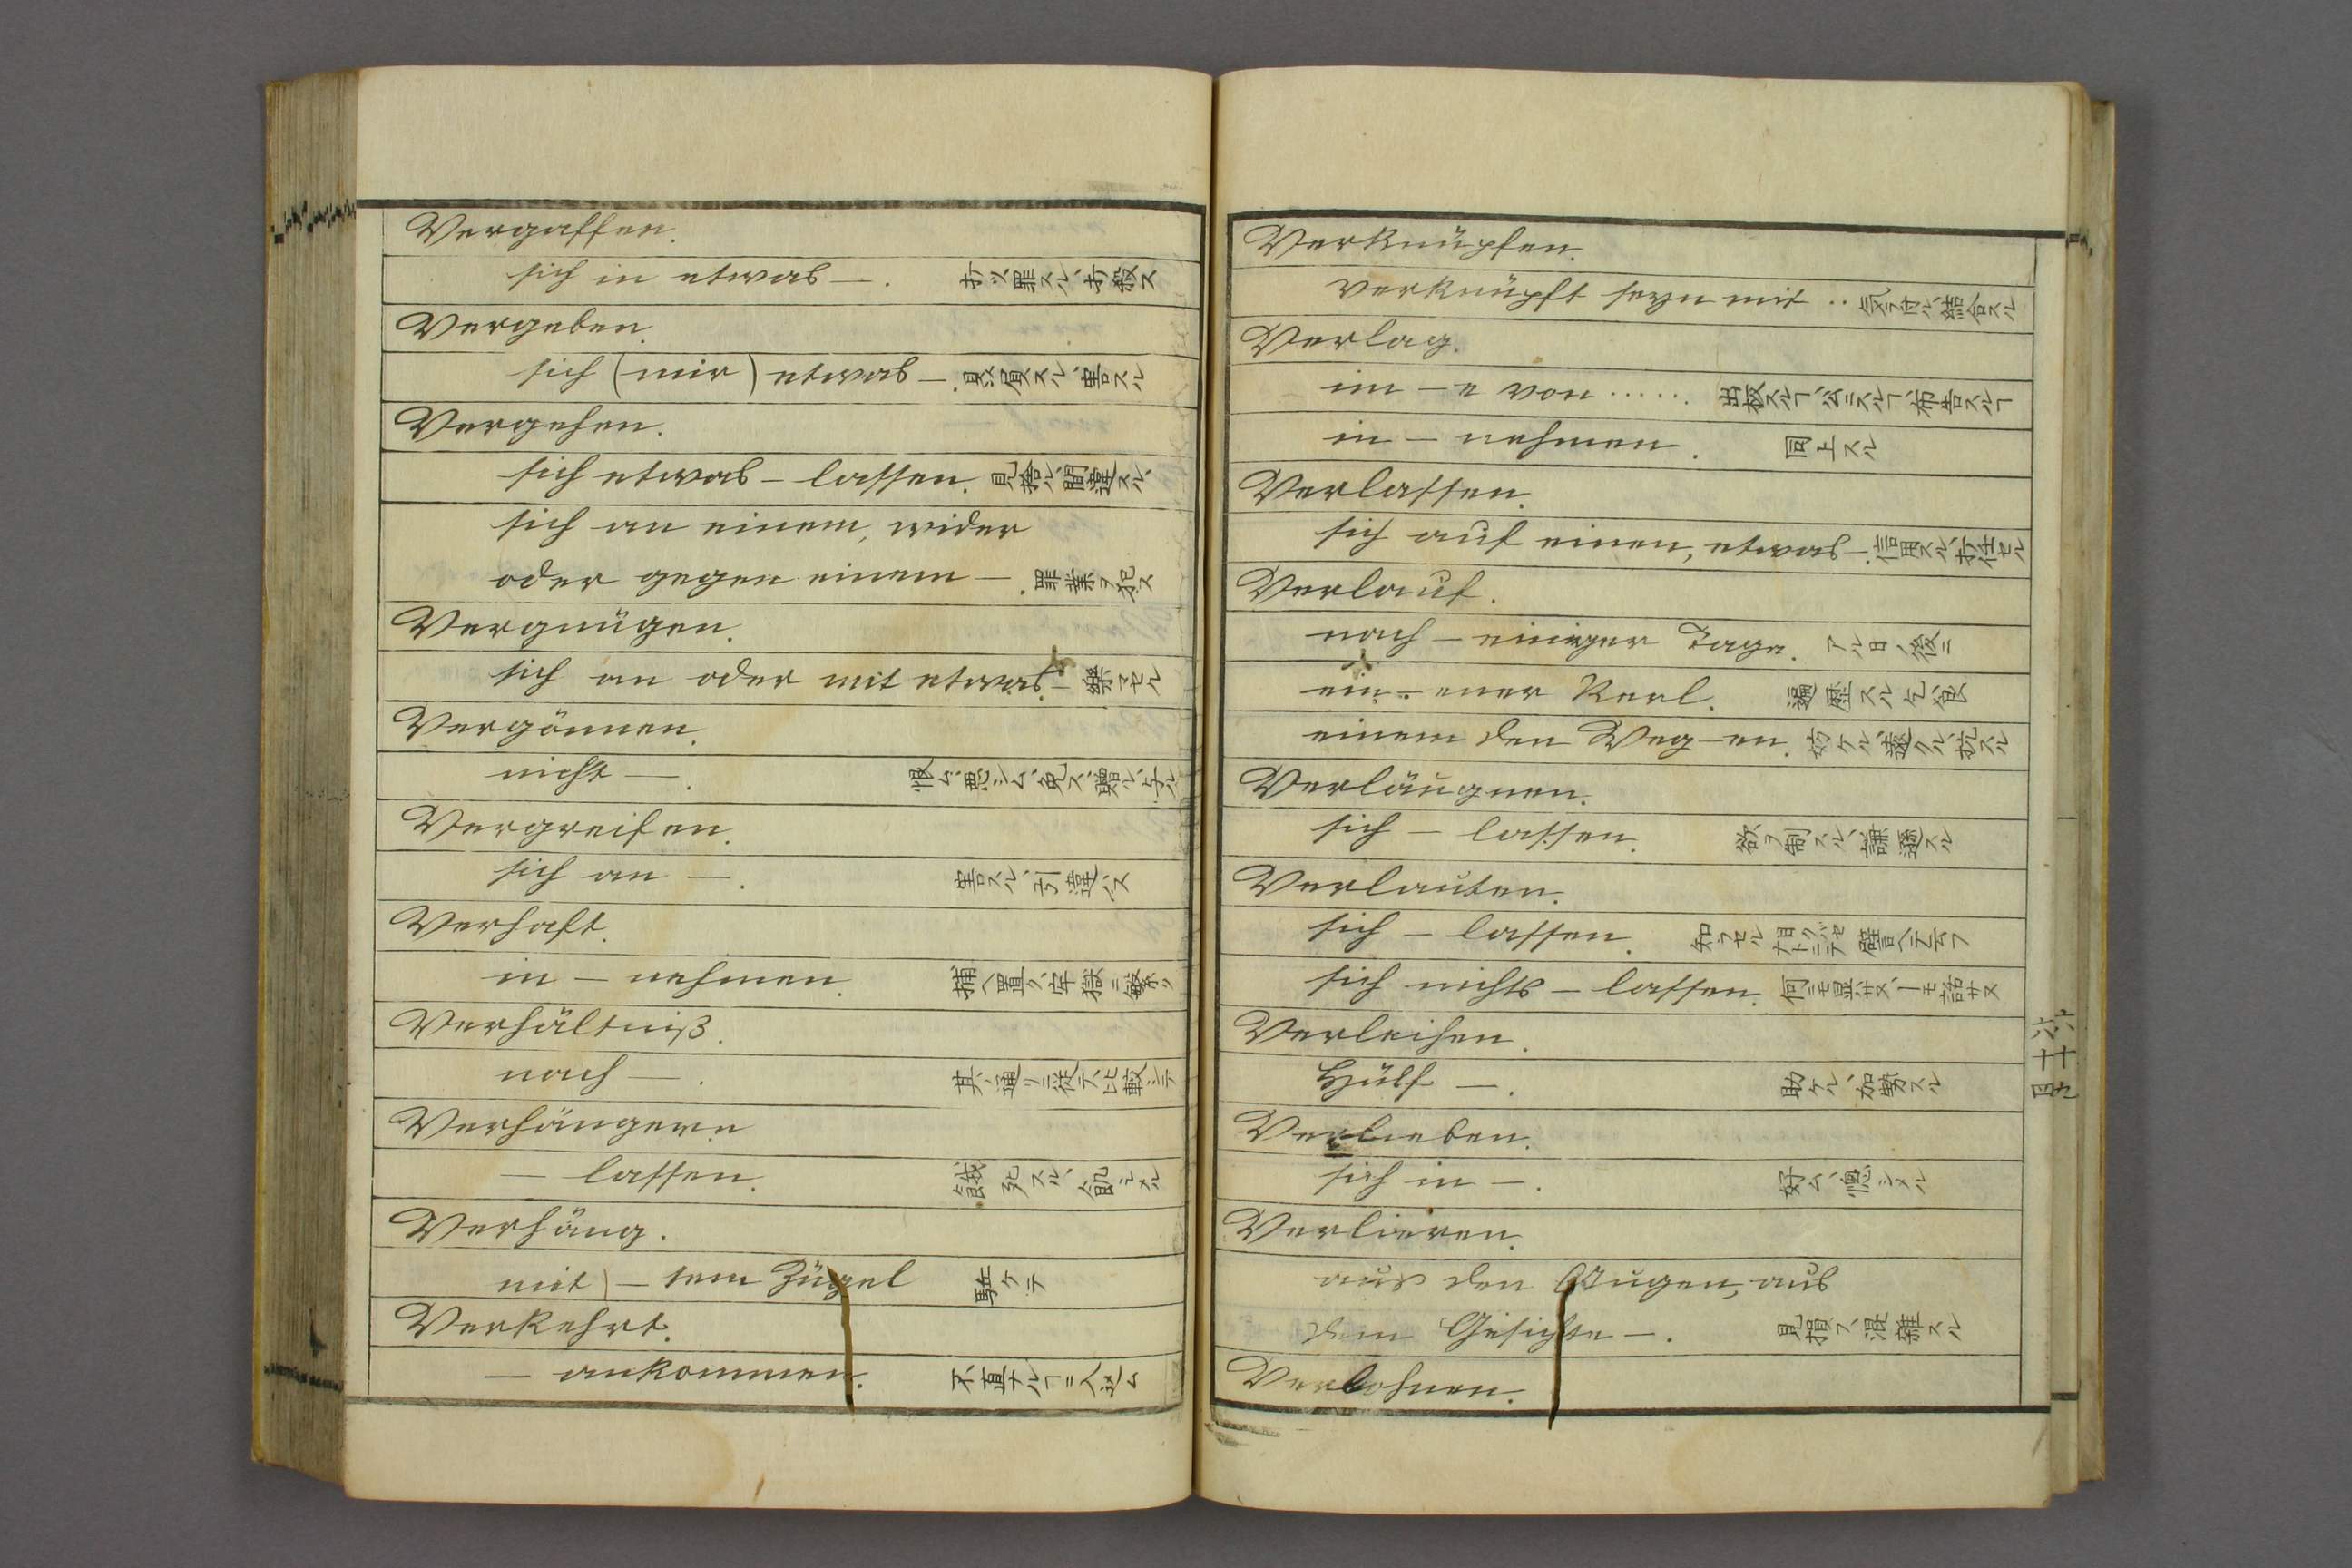 Vergaffen.
sich in etwas —. 打以罪スル、打殺ス
Vergeben.
sich (mir) etwas —. 害スル
Vergehen.
sich etwas — lassen. 見捨ル、間違スル、
sich an einem, wider
oder gegen einem —. 罪業ヲ犯ス
Vergnügen.
sich an oder mit etwas —. 樂マセル
Vergönnen.
nicht —. 恨ム、悪シム、免ス、贈ル、与ル
Vergreifen.
sich an —. 害スル、引違ス
Verhaft.
in — nehmen. 捕ヘ置ク、牢獄ニ繋ク
Verhältniß.
nach —. 其通リニ、従テ、比較シテ
Verhängern
— lassen. 餓死スル、飢シメル
Verhäng.
mit — tem Zügel 駈ケテ
Verkehrt.
— ankommen. 不直ナルヿニ入込ム
Verknüpfen.
verknüpft seyn mit .. 結合スル
Verlag.
im — e von ...... 出板スルヿ、公ニスルヿ、布告スルヿ
in — nehmen. 同上スル
Verlassen.
sich auf einen, etwas —. 信用スル、打任セル
Verlauf.
nach — einiger Tage. アル日ノ後ニ
ein — ener Kerl. 遍歴スル乞食
einem den Weg — en. 妨ケル、遮クル、抗スル
Verläugnen.
sich — lassen. 欲ヲ制スル、謙遜スル
Verlauten.
sich — lassen. 知ラセル
sich nichts — lassen. 何ニモ顕サス、一モ話サス
Verleihen.
Hülf —. 助ケル、加勢スル
Verlieben.
sich in —. 好ム、惚シメル
Verlieren.
aus den Augen, aus
dem Gesichte —. 見損ス、混雑スル
Verlohnen.
六十四